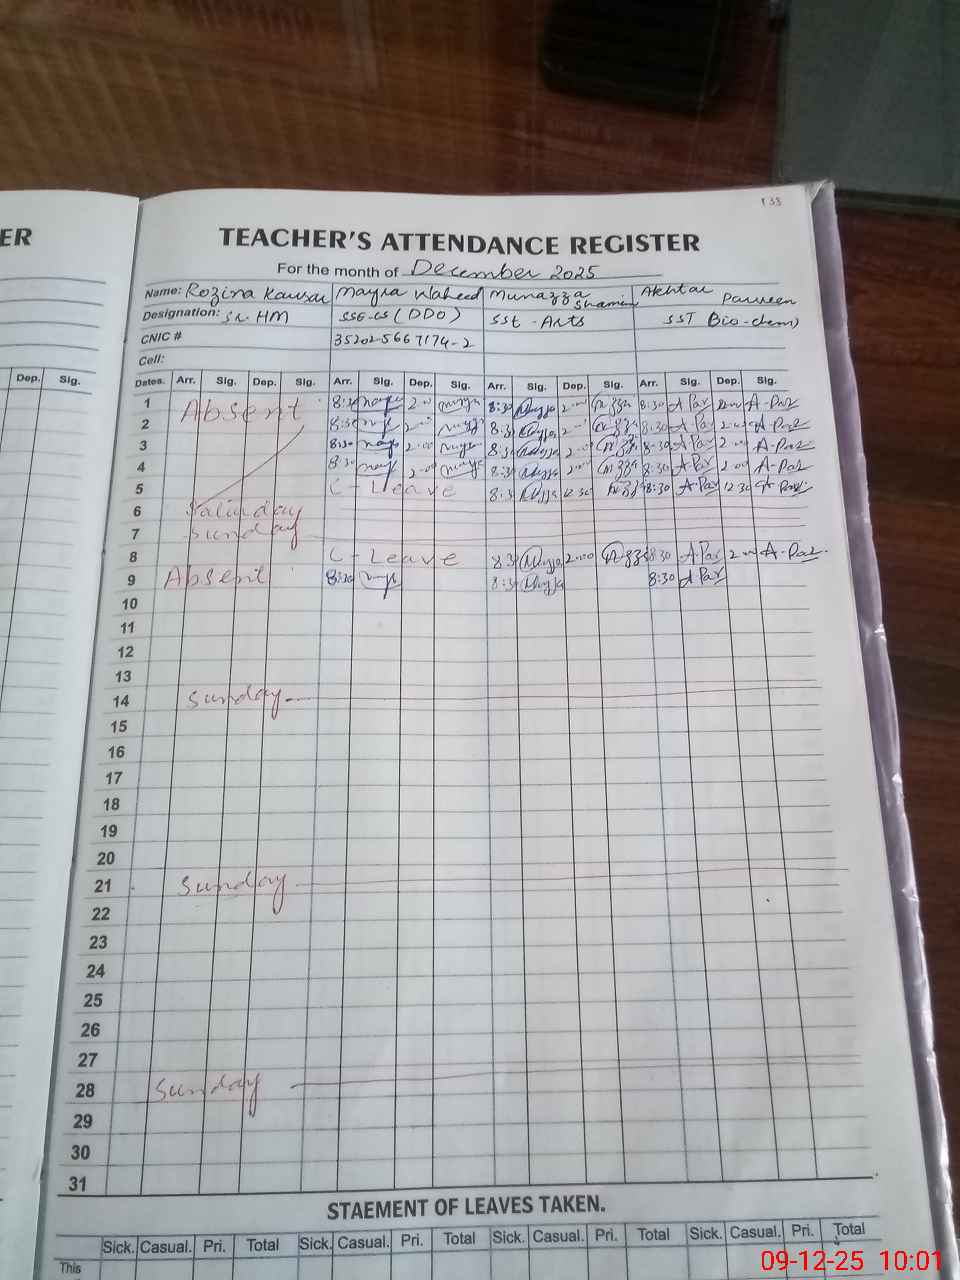 ER
Dep. Sig.
133
TEACHER'S ATTENDANCE REGISTER
For the month of December 2025
Name: Rozina Kausar Mayra Waheed Munazza Shamim Akhtar Parveen
Designation: Sr. HM SSE-CS (DDO) SST - Arts SST Bio-chem)
CNIC # 35202-5667174-2
Cell:
Dates. Arr. Sig. Dep. Sig. Arr. Sig. Dep. Sig. Arr. Sig. Dep. Sig. Arr. Sig. Dep. Sig.
1 Absent 8:30 2.00 8:30 2.00 8:30 A Par 2.00 A-Par
2 8:30 2.00 8:30 2.00 8:30 A Par 2.00 A-Par
3 8:30 2.00 8:30 2.00 8:30 A Par 2.00 A-Par
4 8:30 2.00 8:30 2.00 8:30 A Par 2.00 A-Par
5 C-Leave 8:30 12.30 8:30 A-Par 12.30 A-Par
6 Saturday
7 Sunday
8 C-Leave 8:30 2.00 8:30 A-Par 2.00 A-Par
9 Absent 8:30 8:30 8:30 A Par
10
11
12
13
14 Sunday
15
16
17
18
19
20
21 Sunday
22
23
24
25
26
27
28 Sunday
29
30
31
STAEMENT OF LEAVES TAKEN.
Sick. Casual. Pri. Total Sick. Casual. Pri. Total Sick. Casual. Pri. Total Sick. Casual. Pri. Total
This
09-12-25 10:01